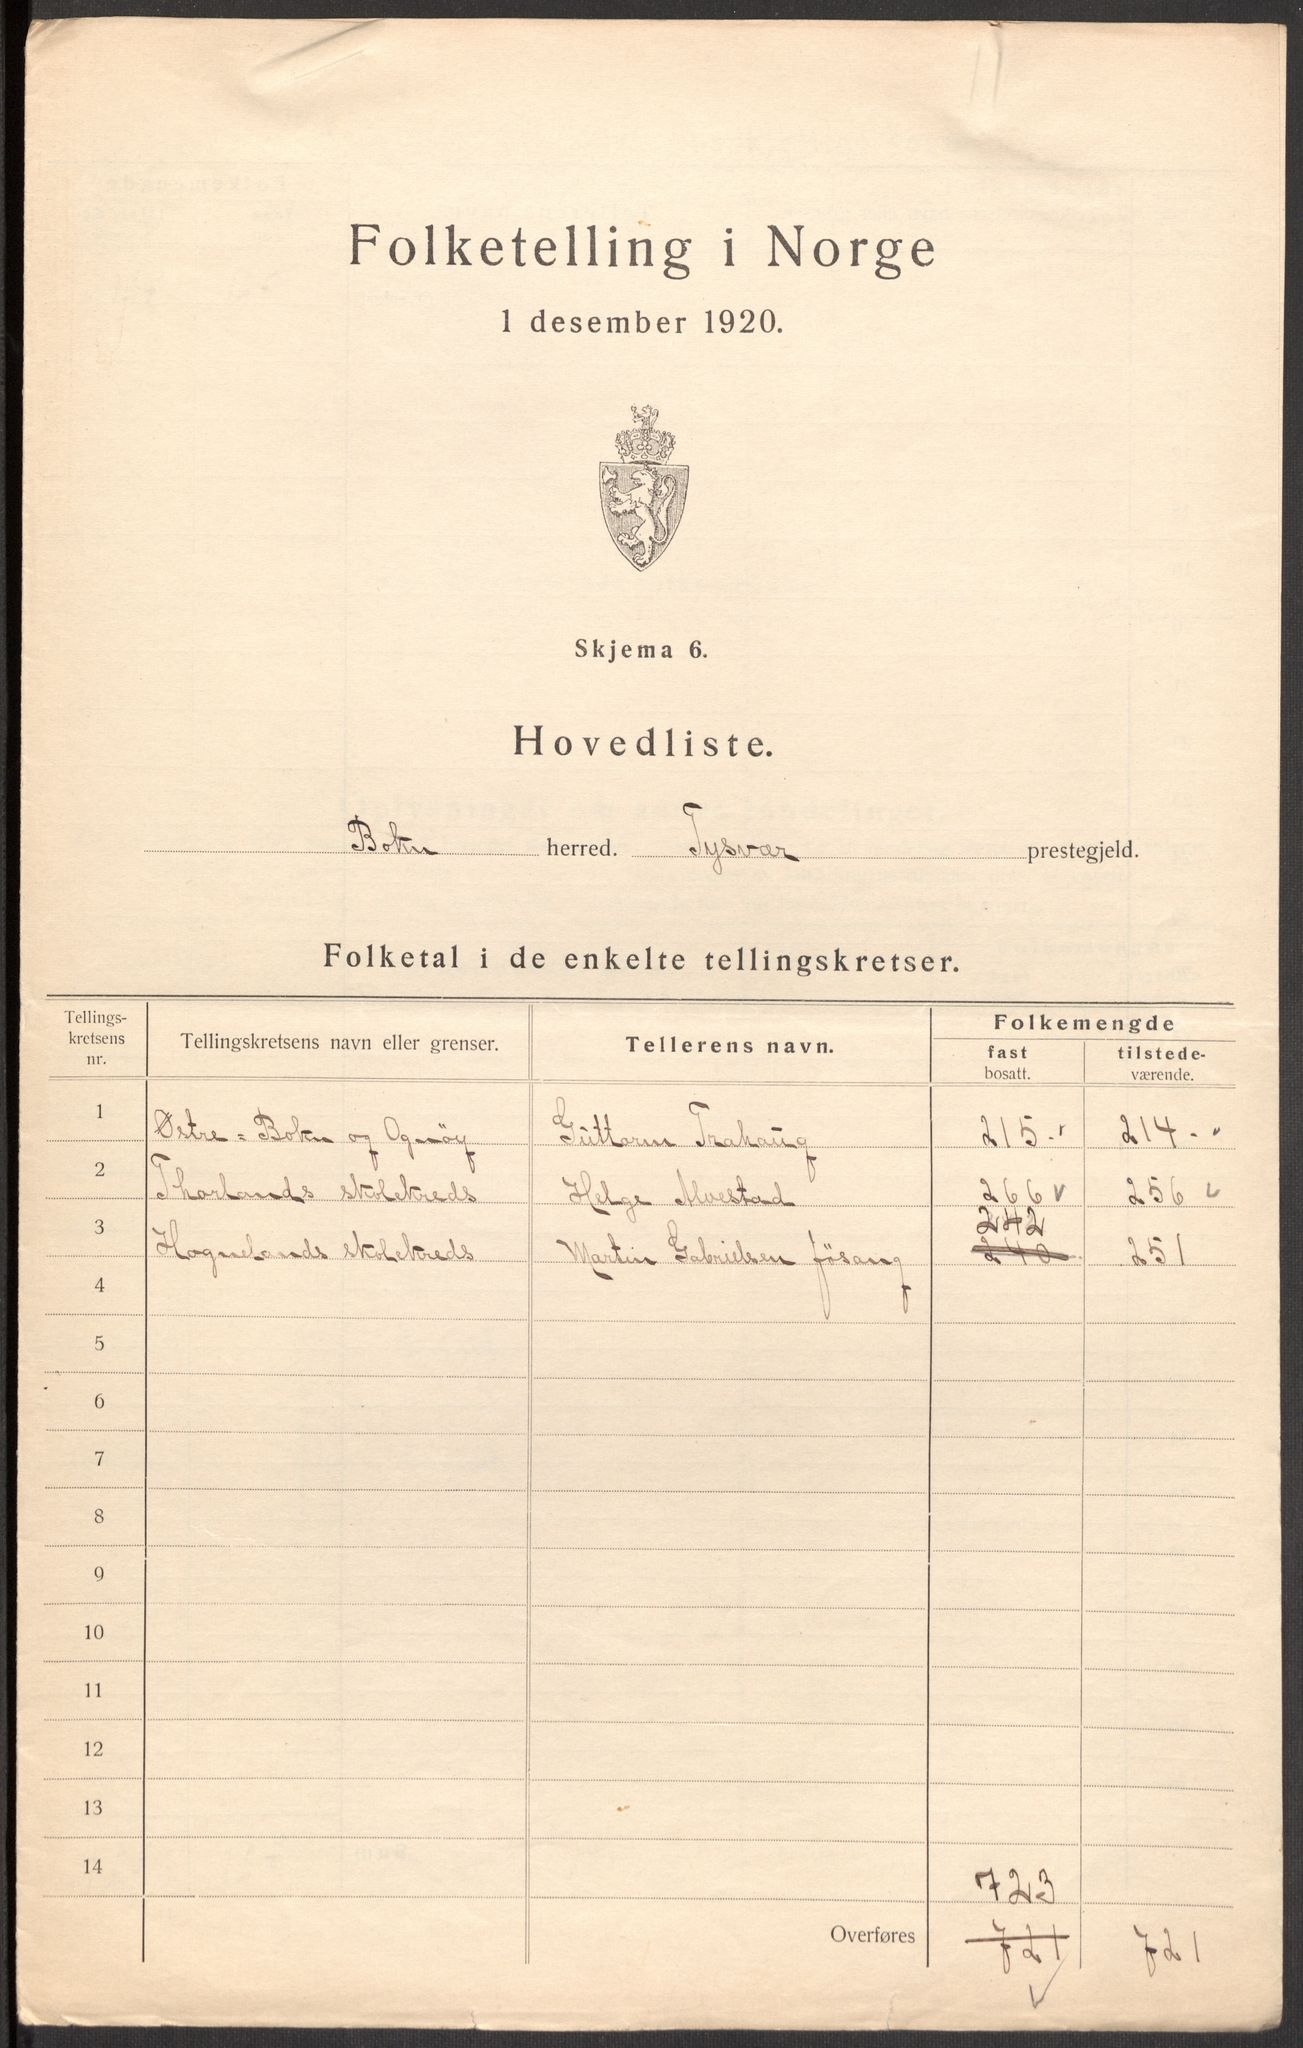 Folketelling i Norge
1 desember 1920.
Skjema 6.
Hovedliste.
Bokn herred. Tysvær prestegjeld.
Folketal i de enkelte tellingskretser.
Tellings-
kretsens
nr.
Tellingskretsens navn eller grenser.
Tellerens navn.
Folkemengde
fast
bosatt.
tilstede-
værende.
1 Østre = Bokn og Ognöy Guttorm Trahaug 215 - 214 -
2 Thorlands skolekreds Helge Alvestad 266 256
242
3 Hognelands skolekreds Martin Gabrielsen Jösang 240 251
4
5
6
7
8
9
10
11
12
13
14
723
Overføres 721 721